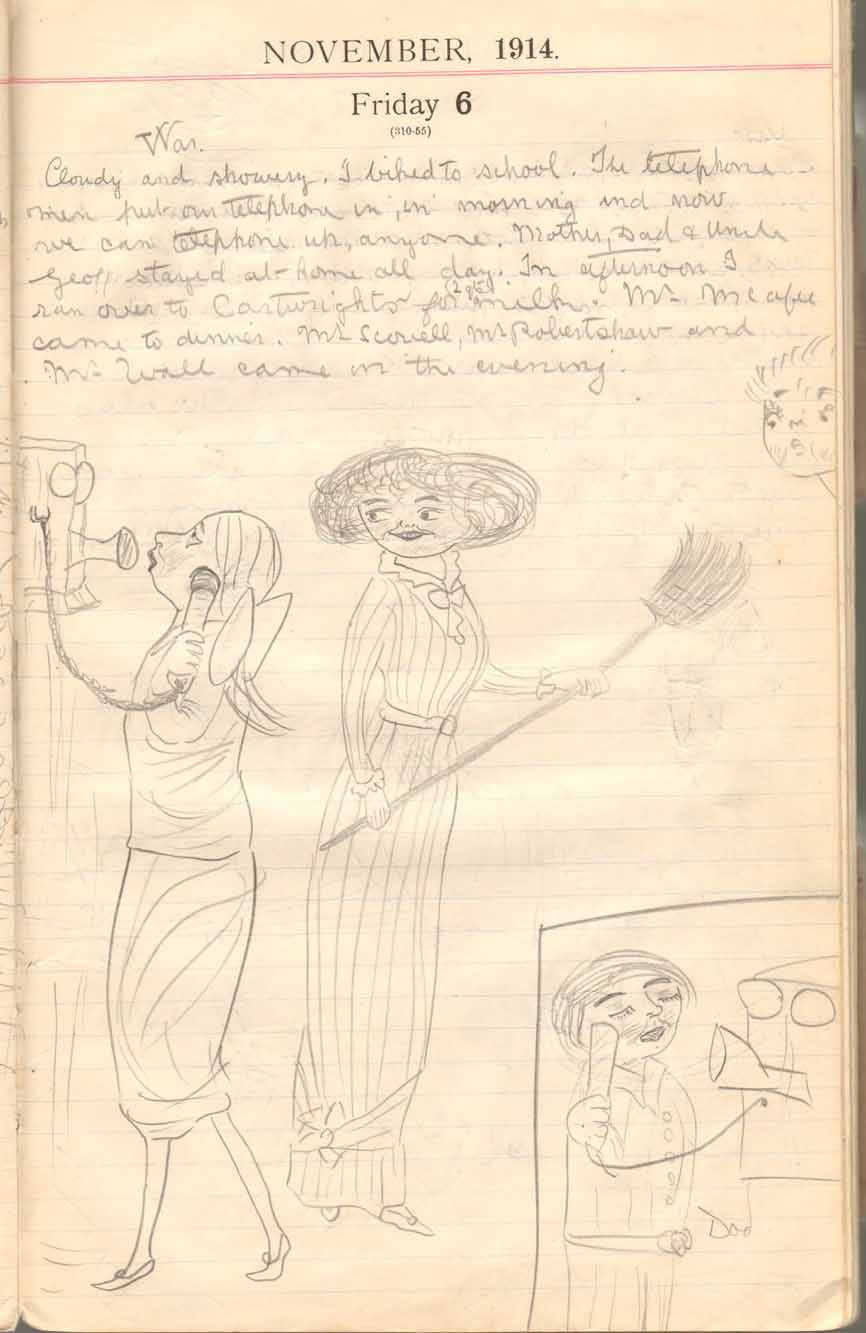 NOVEMBER, 1914.
Friday 6
(310-55)
War.
Cloudy and showery. I biked to school. The telephone
men put our telephone in, in morning and now
we can telephone up, anyone. Mother, Dad & Uncle
Geoff stayed at home all day. In afternoon I
ran over to Cartwrights for (2 qts) milk. Mr. McAfee
came to dinner. Mr. Scovell, Mr. Robertshaw and
Mr. Wall came in the evening.